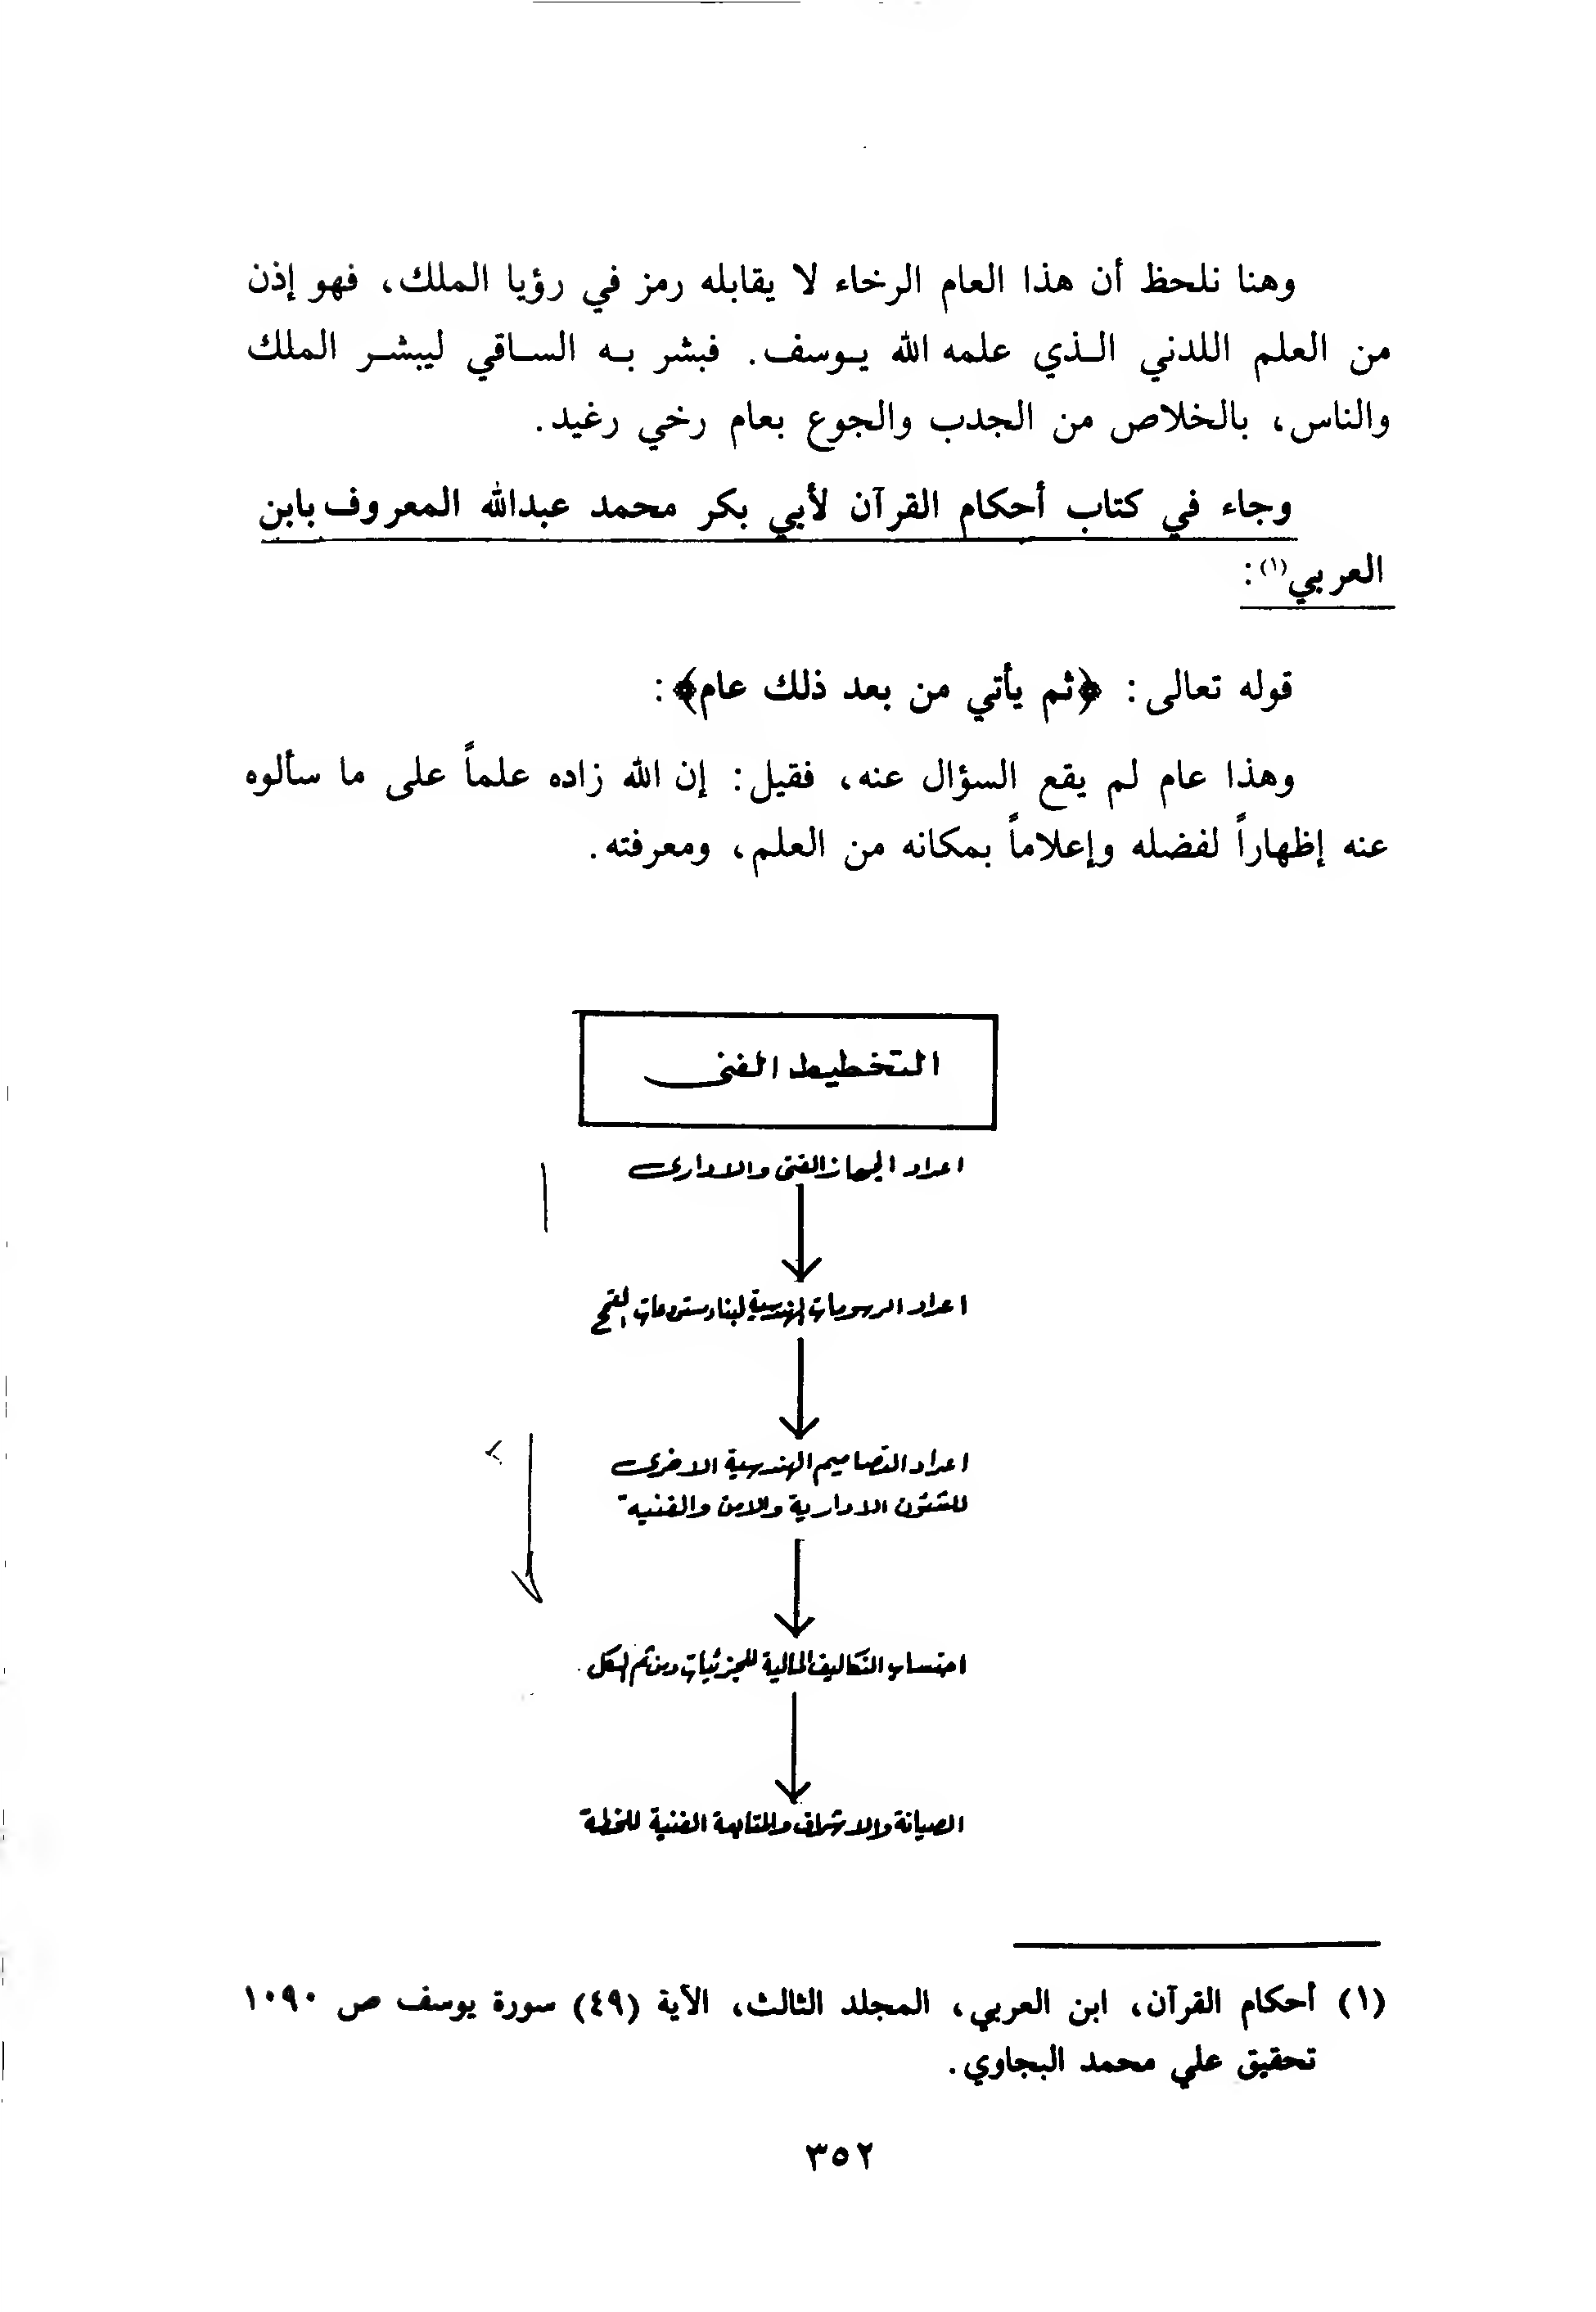 وهنا نلحظ أن هذا العام الرخاء لا يقابله رمز في رؤيا الملك، فهو إذن
من العلم اللدني الذي علمه الله يوسف. فبشر به الساقي ليبشر الملك
والناس، بالخلاص من الجدب والجوع بعام رخي رغيد.
وجاء في كتاب أحكام القرآن لأبي بكر محمد عبدالله المعروف بابن
العربي(١):
قوله تعالى: ﴿ثم يأتي من بعد ذلك عام﴾:
وهذا عام لم يقع السؤال عنه، فقيل: إن الله زاده علماً على ما سألوه
عنه إظهاراً لفضله وإعلاماً بمكانه من العلم، ومعرفته.
التخطيط الفنى
اعداد الجهاز الفنى والادارى
اعداد الرسومات الهندسية لبناء مستودعات القمح
اعداد التصاميم الهندسية الاخرى
للشئون الادارية والامن والفنية
احتساب التكاليف المالية للجزئيات ومن ثم للكل
الصيانة والاشراف والمتابعة الفنية للخطة
(١) أحكام القرآن، ابن العربي، المجلد الثالث، الآية (٤٩) سورة يوسف ص ١٠٩٠
تحقيق علي محمد البجاوي.
٣٥٢